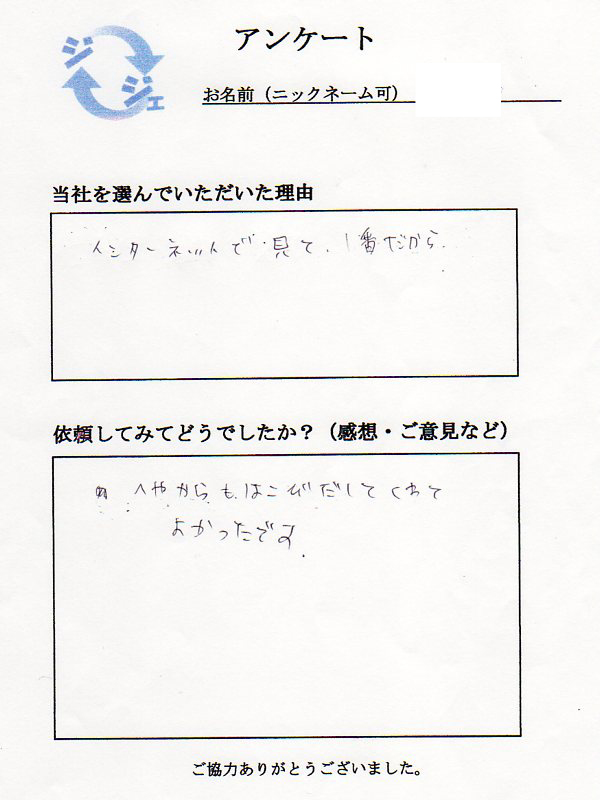 ジジェ
アンケート
お名前（ニックネーム可）
当社を選んでいただいた理由
インターネットで見て、1番だから.
依頼してみてどうでしたか？（感想・ご意見など）
へやからもはこびだしてくれて
よかったです.
ご協力ありがとうございました。